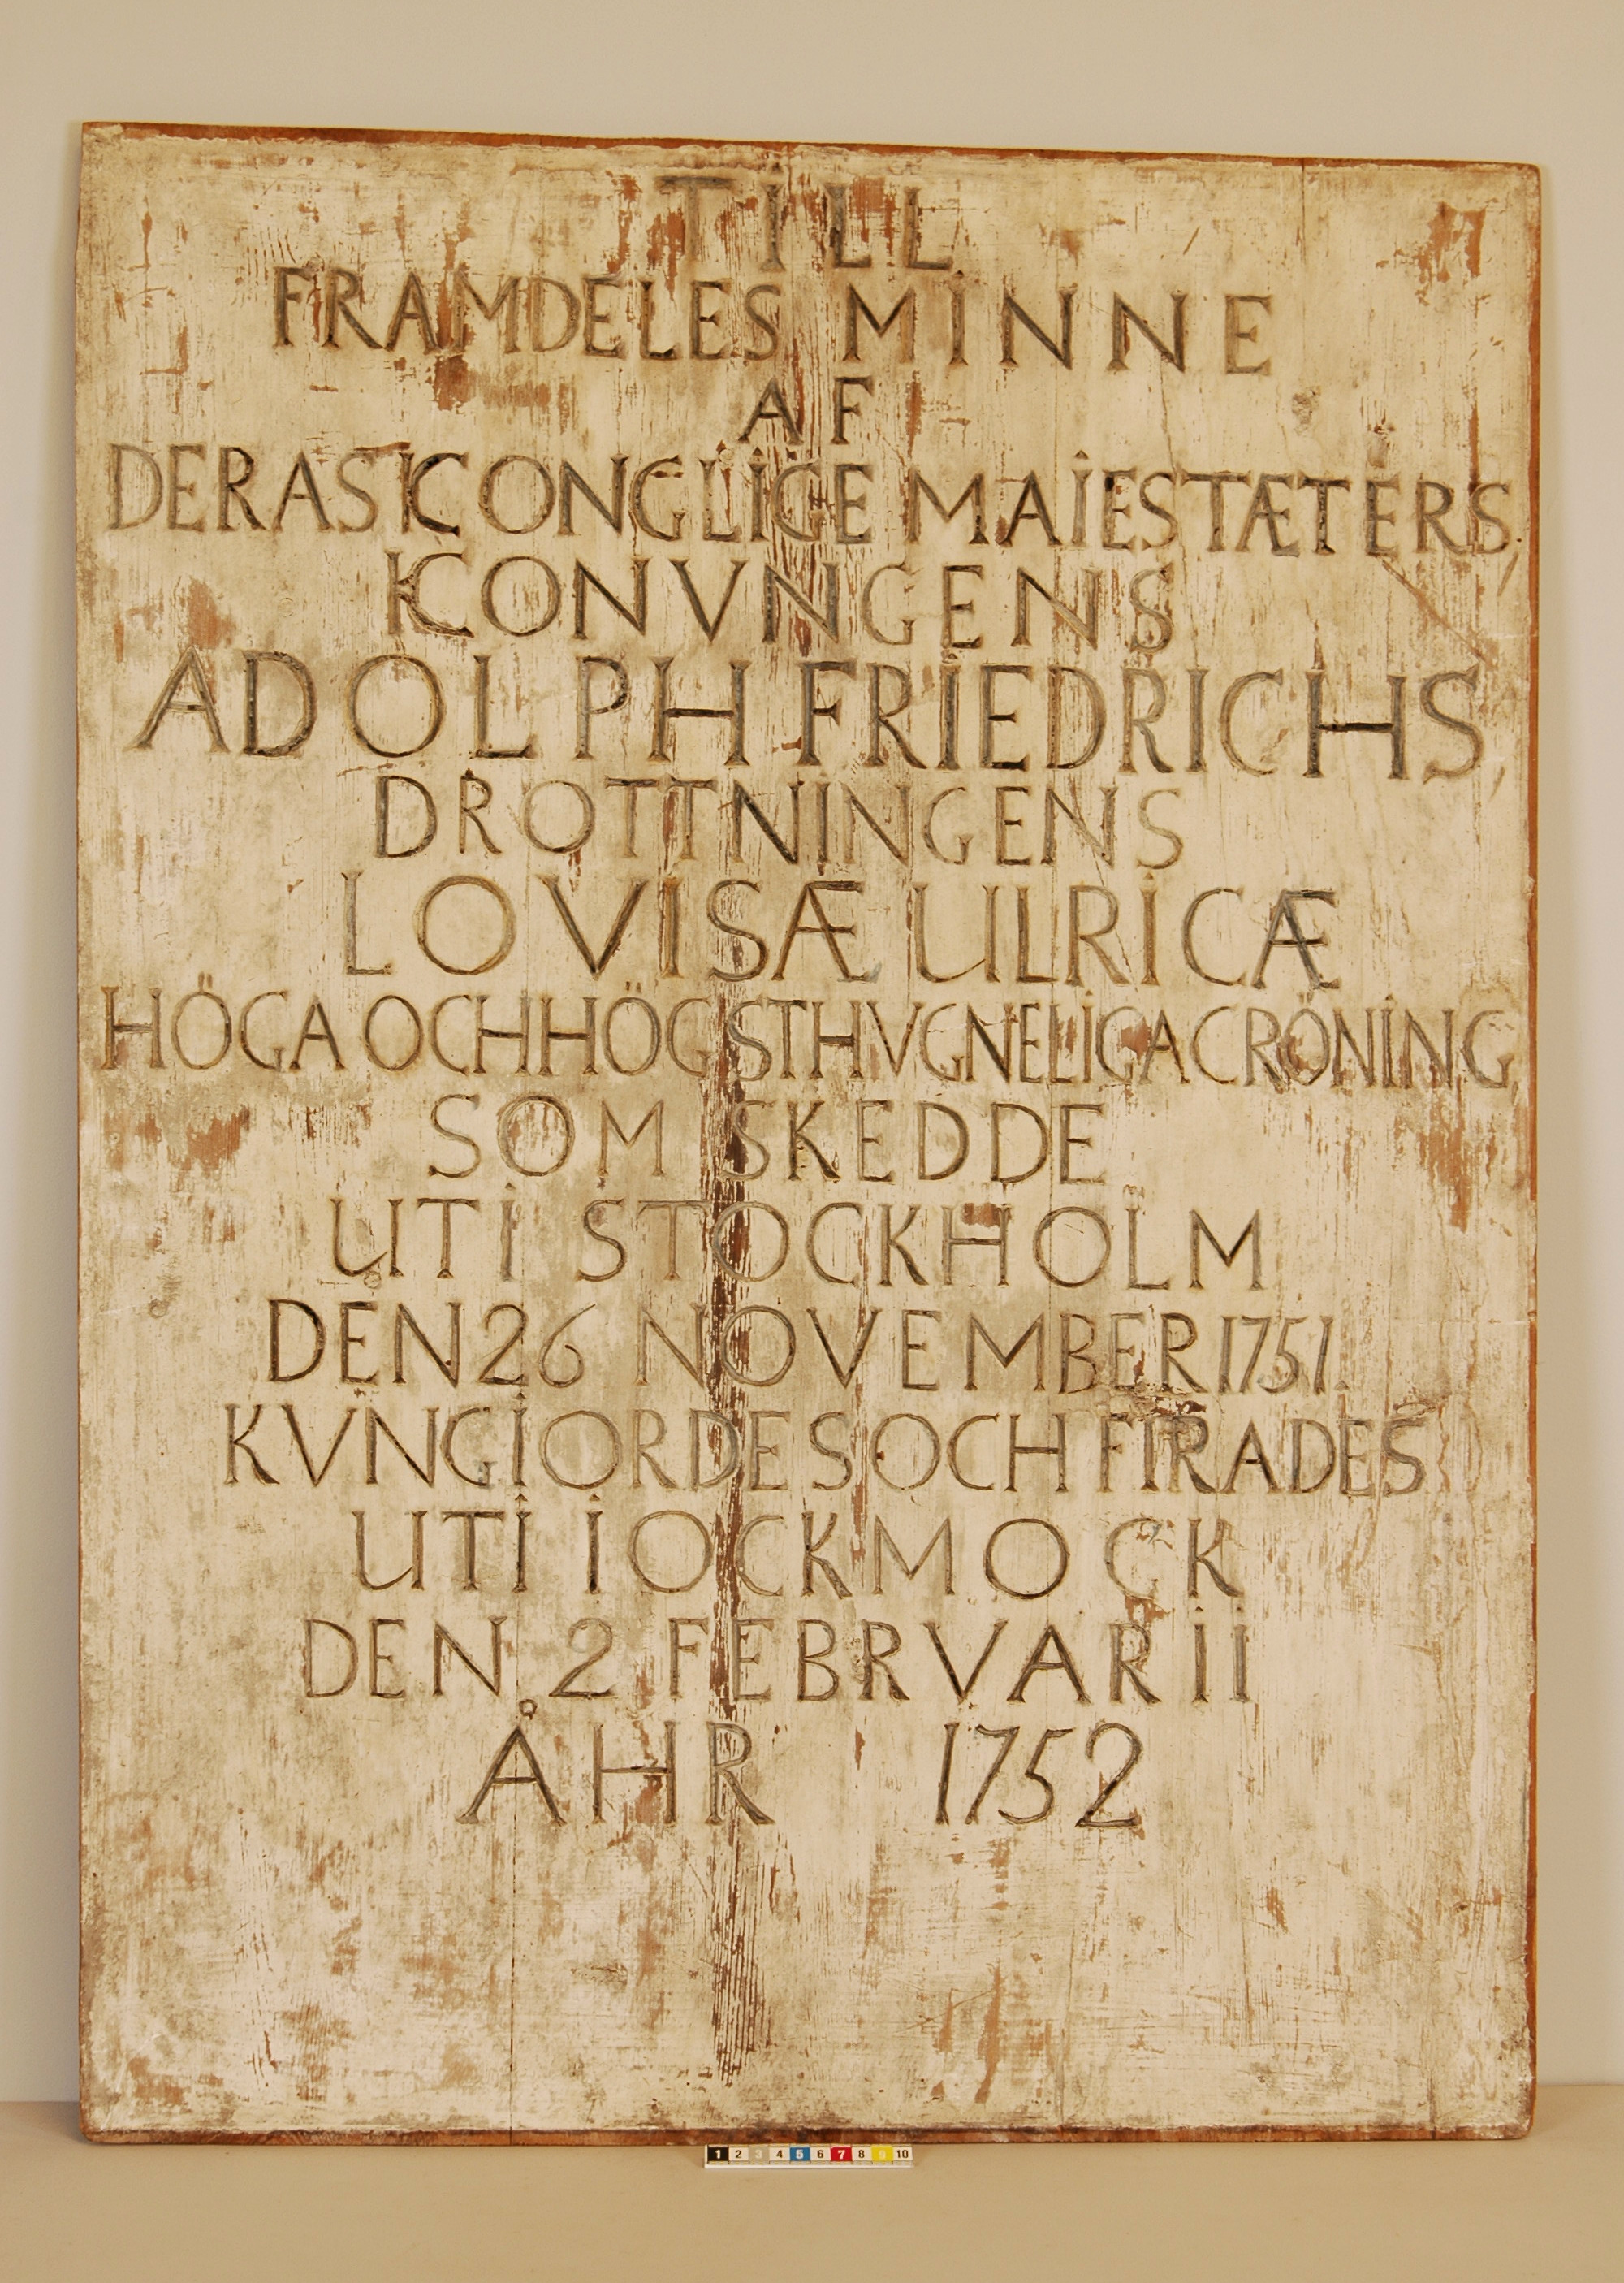 TiLL
FRAMDELES MiNNE
AF
DERAS KONGLiGE MAiESTÆTERS,
KONVNGENS
ADOLPH FRIEDRICHS,
DROTTNINGENS
LOVISÆ ULRICÆ
HÖGA OCH HÖGSTHVGNELiGA CRÖNiNG,
SOM SKEDDE
UTi STOCKHOLM
DEN 26 NOVEMBER 1751.
KVNGiORDES OCH FIRADES
UTi iOCKMOCK
DEN 2 FEBRVARii
ÅHR 1752
1 2 3 4 5 6 7 8 9 10